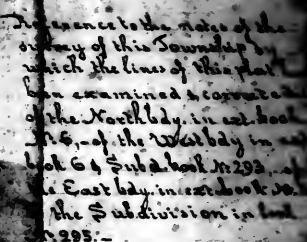 Reference to the notes of the
survey of this Township by
which the lines of this plat
been examined & correcte
of the North bdy. in ext. boo
No 6, of the West bdy in
book 61 Subd. book No 293, of
the East bdy. in ext. book No.
the Subdivision in book
No 295:-